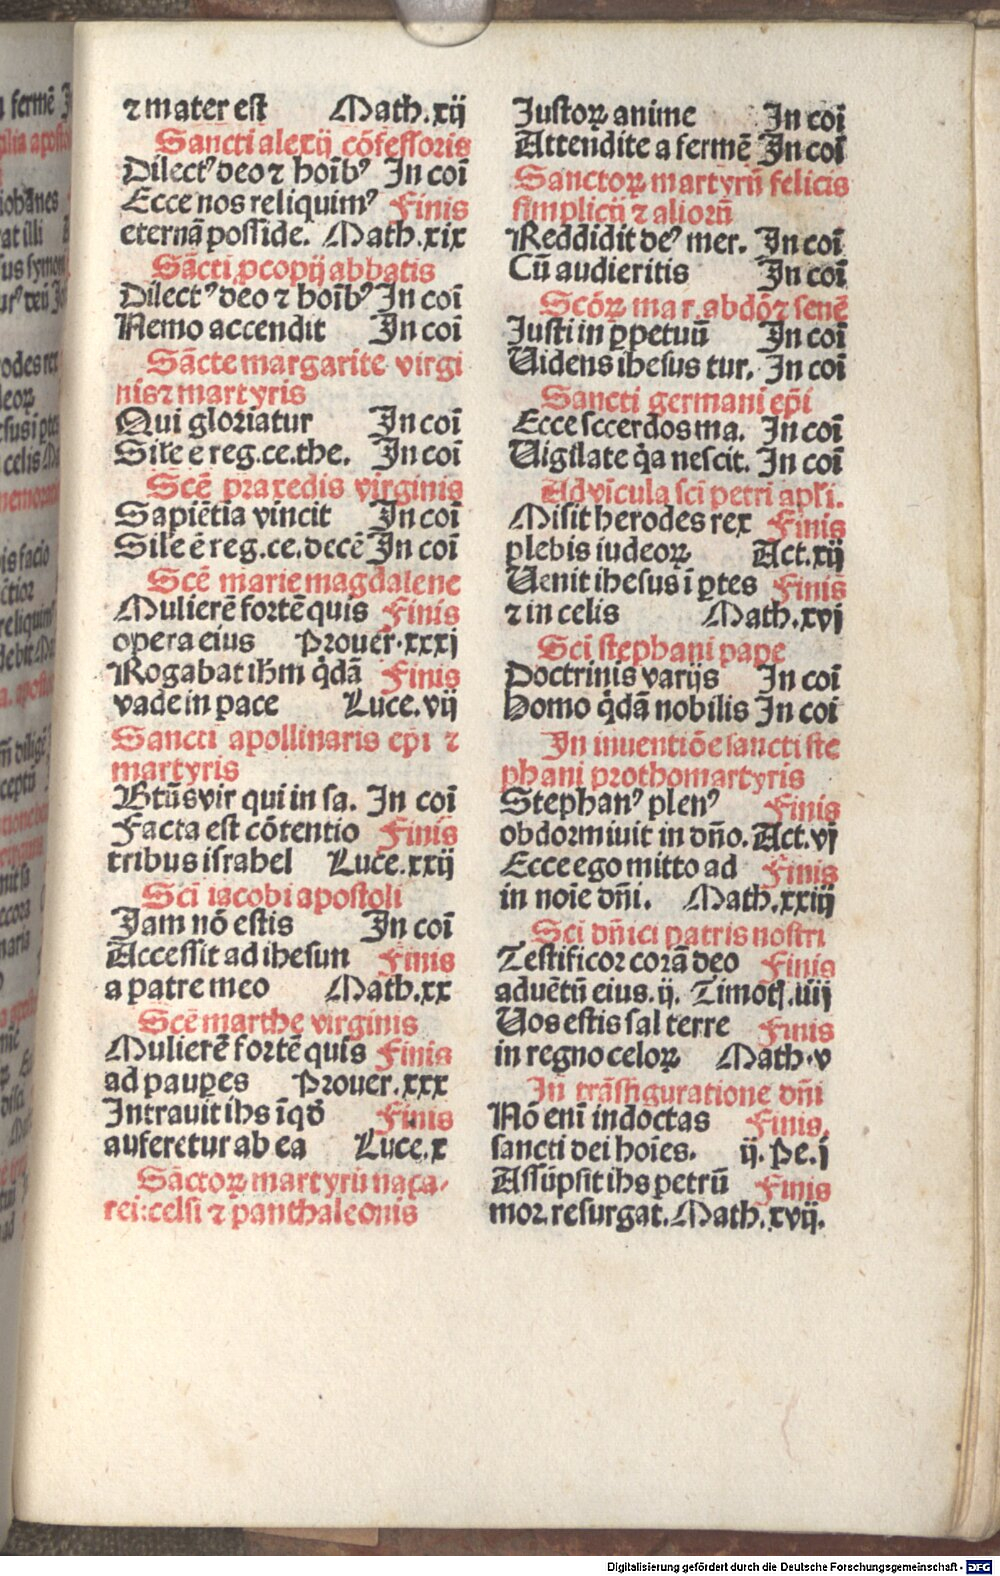 ⁊ mater est Math.xij
Sancti alexij cõfessoris
Dilectꝰ deo ⁊ hoĩbꝰ In coĩ
Ecce nos reliquimꝰ Finis
eternã posside. Math.xix
Sãcti ꝓcopij abbatis
Dilectꝰ deo ⁊ hoĩbꝰ In coĩ
Nemo accendit In coĩ
Sãcte margarite virgi
nis ⁊ martyris
Qui gloriatur In coĩ
Sile ẽ reg.ce.the. In coĩ
Scẽ praxedis virginis
Sapiẽtia vincit In coĩ
Sile ẽ reg.ce.decẽ In coĩ
Scẽ marie magdalene
Mulierẽ fortẽ quis Finis
opera eius Prouer.xxxj
Rogabat ihm̃ q̇dã Finis
vade in pace Luce.vij
Sancti apollinaris epĩ ⁊
martyris
Btũs vir qui in sa. In coĩ
Facta est cõtentio Finis
tribus israhel Luce.xxij
Scĩ iacobi apostoli
Jam nõ estis In coĩ
Accessit ad ihesun Finis
a patre meo Math.xx
Scẽ marthe virginis
Mulierẽ fortẽ quis Finis
ad pauꝑes Prouer.xxx
Intrauit ihs ĩ qḋ Finis
auferetur ab ea Luce.x
Sãctoꝝ martyrũ naza-
rei:celsi ⁊ panthaleonis
Justoꝝ anime In coĩ
Attendite a fermẽ In coĩ
Sanctoꝝ martyrũ felicis
simplicij ⁊ aliorũ
Reddidit deꝰ mer. In coĩ
Cũ audieritis In coĩ
Scõꝝ mar.abdõ⁊ senẽ
Justi in ꝑpetuũ In coĩ
Uidens ihesus tur. In coĩ
Sancti germani epĩ
Ecce sccerdos ma. In coĩ
Uigilate q̇a nescit. In coĩ
Ad vĩcula scĩ petri apłi.
Misit herodes rex Finis
plebis iudeoꝝ Act.xij
Uenit ihesus ĩ ꝑtes Finis
⁊ in celis Math.xvj
Scĩ stephani pape
Doctrinis varijs In coĩ
Homo q̇dã nobilis In coĩ
In inuentiõe sancti ste
phani prothomartyris
Stephanꝰ plenꝰ Finis
obdormiuit in dño. Act.vj
Ecce ego mitto ad Finis
in noĩe dñi. Math.xxiij
Scĩ dñici patris nostri
Testificor corã deo Finis
aduẽtũ eius.ij. Timotĩ.iiij
Uos estis sal terre Finis
in regno celoꝝ Math.v
In trãsfiguratione dñi
Nõ enĩ indoctas Finis.
sancti dei hoĩes. ij. Pe.j
Assũpsit ihs petrũ Finis
mor. resurgat. Math.xvij.
Digitalisierung gefördert durch die Deutsche Forschungsgemeinschaft - DFG